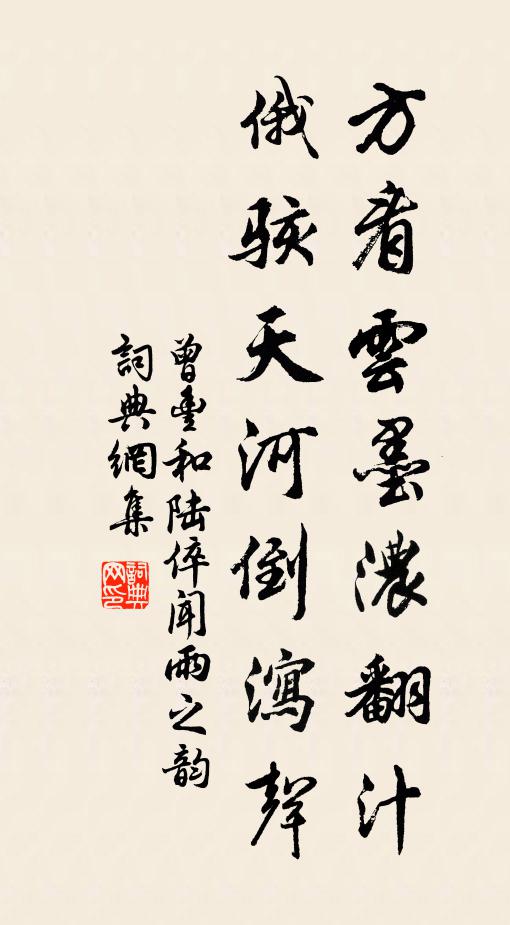 方看雲墨濃翻汁
俄駭天河倒瀉聲
曾豐和陆倅闻雨之韵
詞典網集
詞典网印